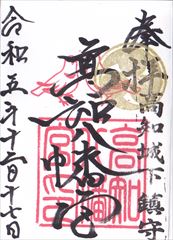 奉拝
高知城下鎮守
高知八幡宮
令和五年十二月十七日